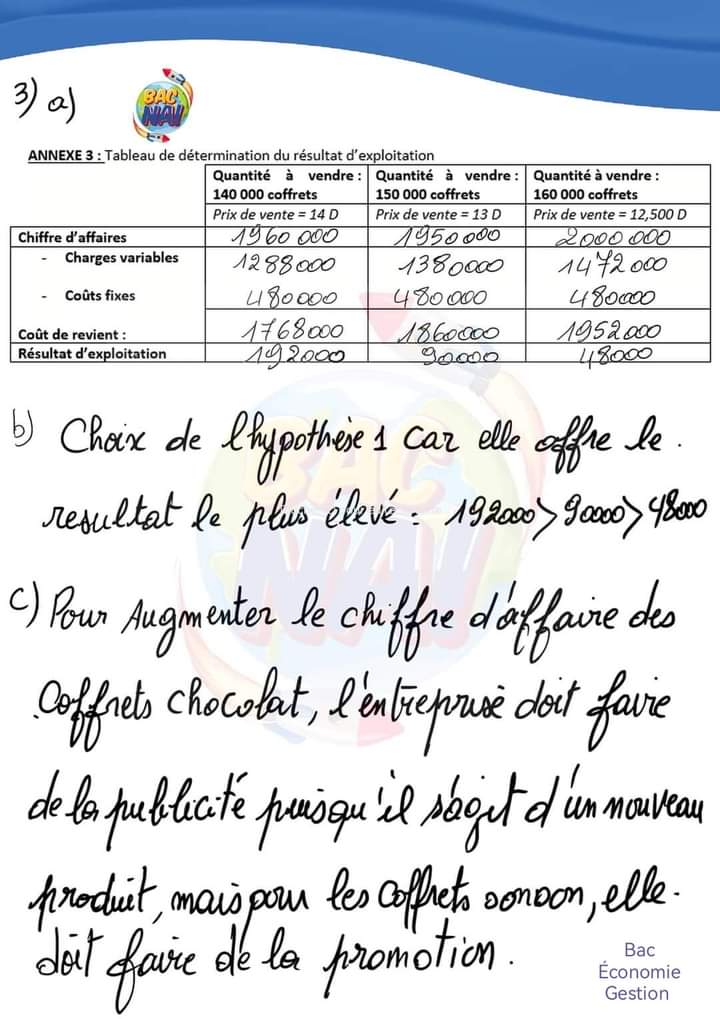 3) a)
BAC
NAI
ANNEXE 3 : Tableau de détermination du résultat d'exploitation
Quantité à vendre : 140 000 coffrets Quantité à vendre : 150 000 coffrets Quantité à vendre : 160 000 coffrets
Prix de vente = 14 D Prix de vente = 13 D Prix de vente = 12,500 D
Chiffre d'affaires 1960 000 1950 000 2000 000
- Charges variables 1288000 1380000 1472 000
- Coûts fixes 480000 480000 480000
Coût de revient : 1768000 1860000 1952000
Résultat d'exploitation 192000 90000 48000
b) Choix de l'hypothèse 1 car elle offre le
resultat le plus élevé : 192000 > 90000 > 48000
c) Pour Augmenter le chiffre d'affaire des
Coffrets chocolat, l'entreprise doit faire
de la publicité puisqu'il s'agit d'un nouveau
produit, mais pour les Coffrets bonbon, elle
doit faire de la promotion.
BAC
NAI
Bac
Économie
Gestion